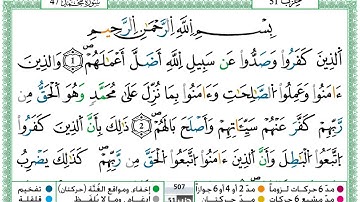 سُورَةُ مُحَمَّدٍ 47
بِسْمِ ٱللَّهِ ٱلرَّحْمَٰنِ ٱلرَّحِيمِ
ٱلَّذِينَ كَفَرُوا۟ وَصَدُّوا۟ عَن سَبِيلِ ٱللَّهِ أَضَلَّ أَعْمَٰلَهُمْ ۝1 وَٱلَّذِينَ
ءَامَنُوا۟ وَعَمِلُوا۟ ٱلصَّٰلِحَٰتِ وَءَامَنُوا۟ بِمَا نُزِّلَ عَلَىٰ مُحَمَّدٍ وَهُوَ ٱلْحَقُّ مِن
رَّبِّهِمْ كَفَّرَ عَنْهُمْ سَيِّـَٔاتِهِمْ وَأَصْلَحَ بَالَهُمْ ۝2 ذَٰلِكَ بِأَنَّ ٱلَّذِينَ كَفَرُوا۟
ٱتَّبَعُوا۟ ٱلْبَٰطِلَ وَأَنَّ ٱلَّذِينَ ءَامَنُوا۟ ٱتَّبَعُوا۟ ٱلْحَقَّ مِن رَّبِّهِمْ كَذَٰلِكَ يَضْرِبُ
مدّ 6 حركات لزوماً مدّ 2 أو 4 أو 6 جوازاً 507 إخفاء، ومواقع الغُنَّة (حركتان) تفخيم
مدّ مشبع 6 حركات مدّ حركتان إدغام، وما لا يُلفَظ قلقلة